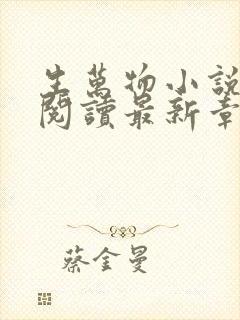 生萬物小說
閱讀最新章
蔡金曼